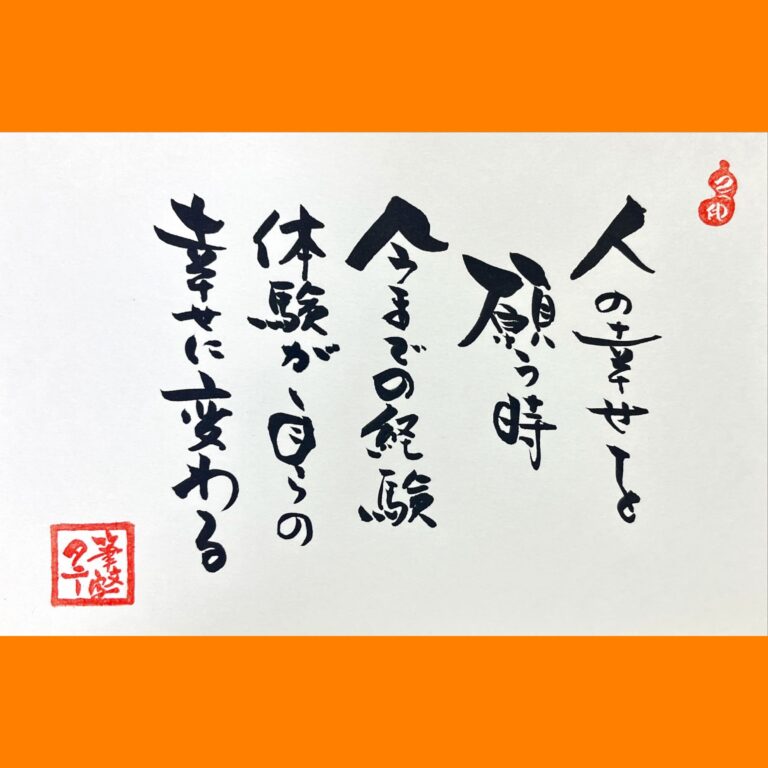 人の幸せを
願う時
今までの経験
体験が自らの
幸せに変わる